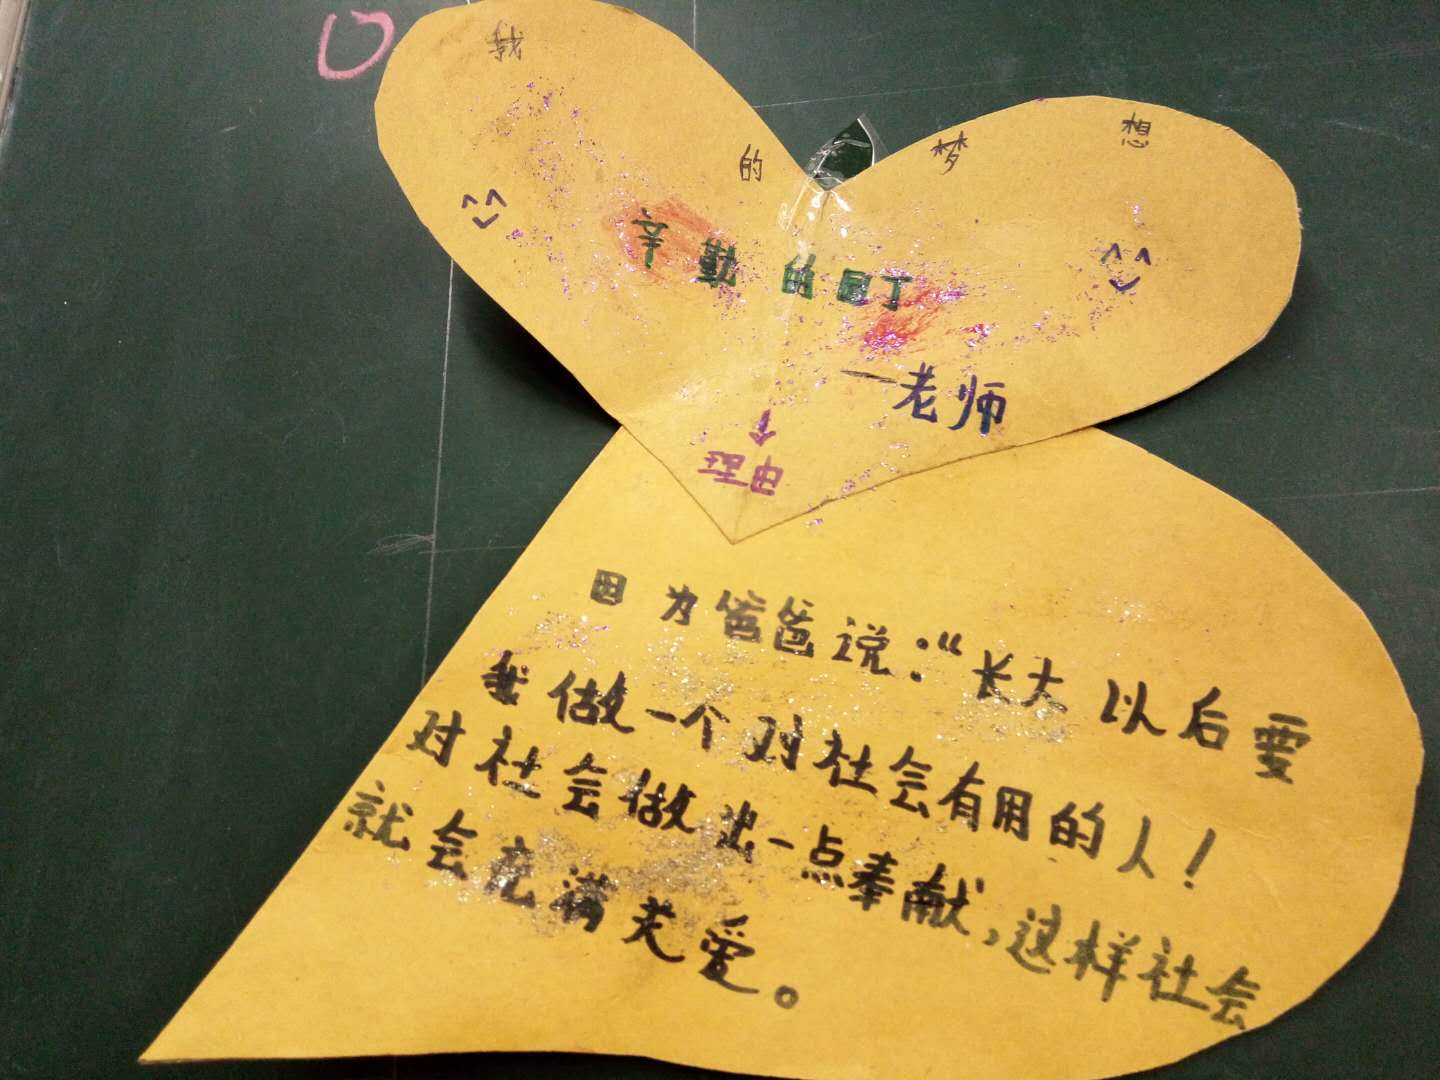 我的梦想
辛勤的园丁
一老师
理由
因为爸爸说:“长大以后要
我做一个对社会有用的人!
对社会做出一点奉献,这样社会
就会充满关爱。